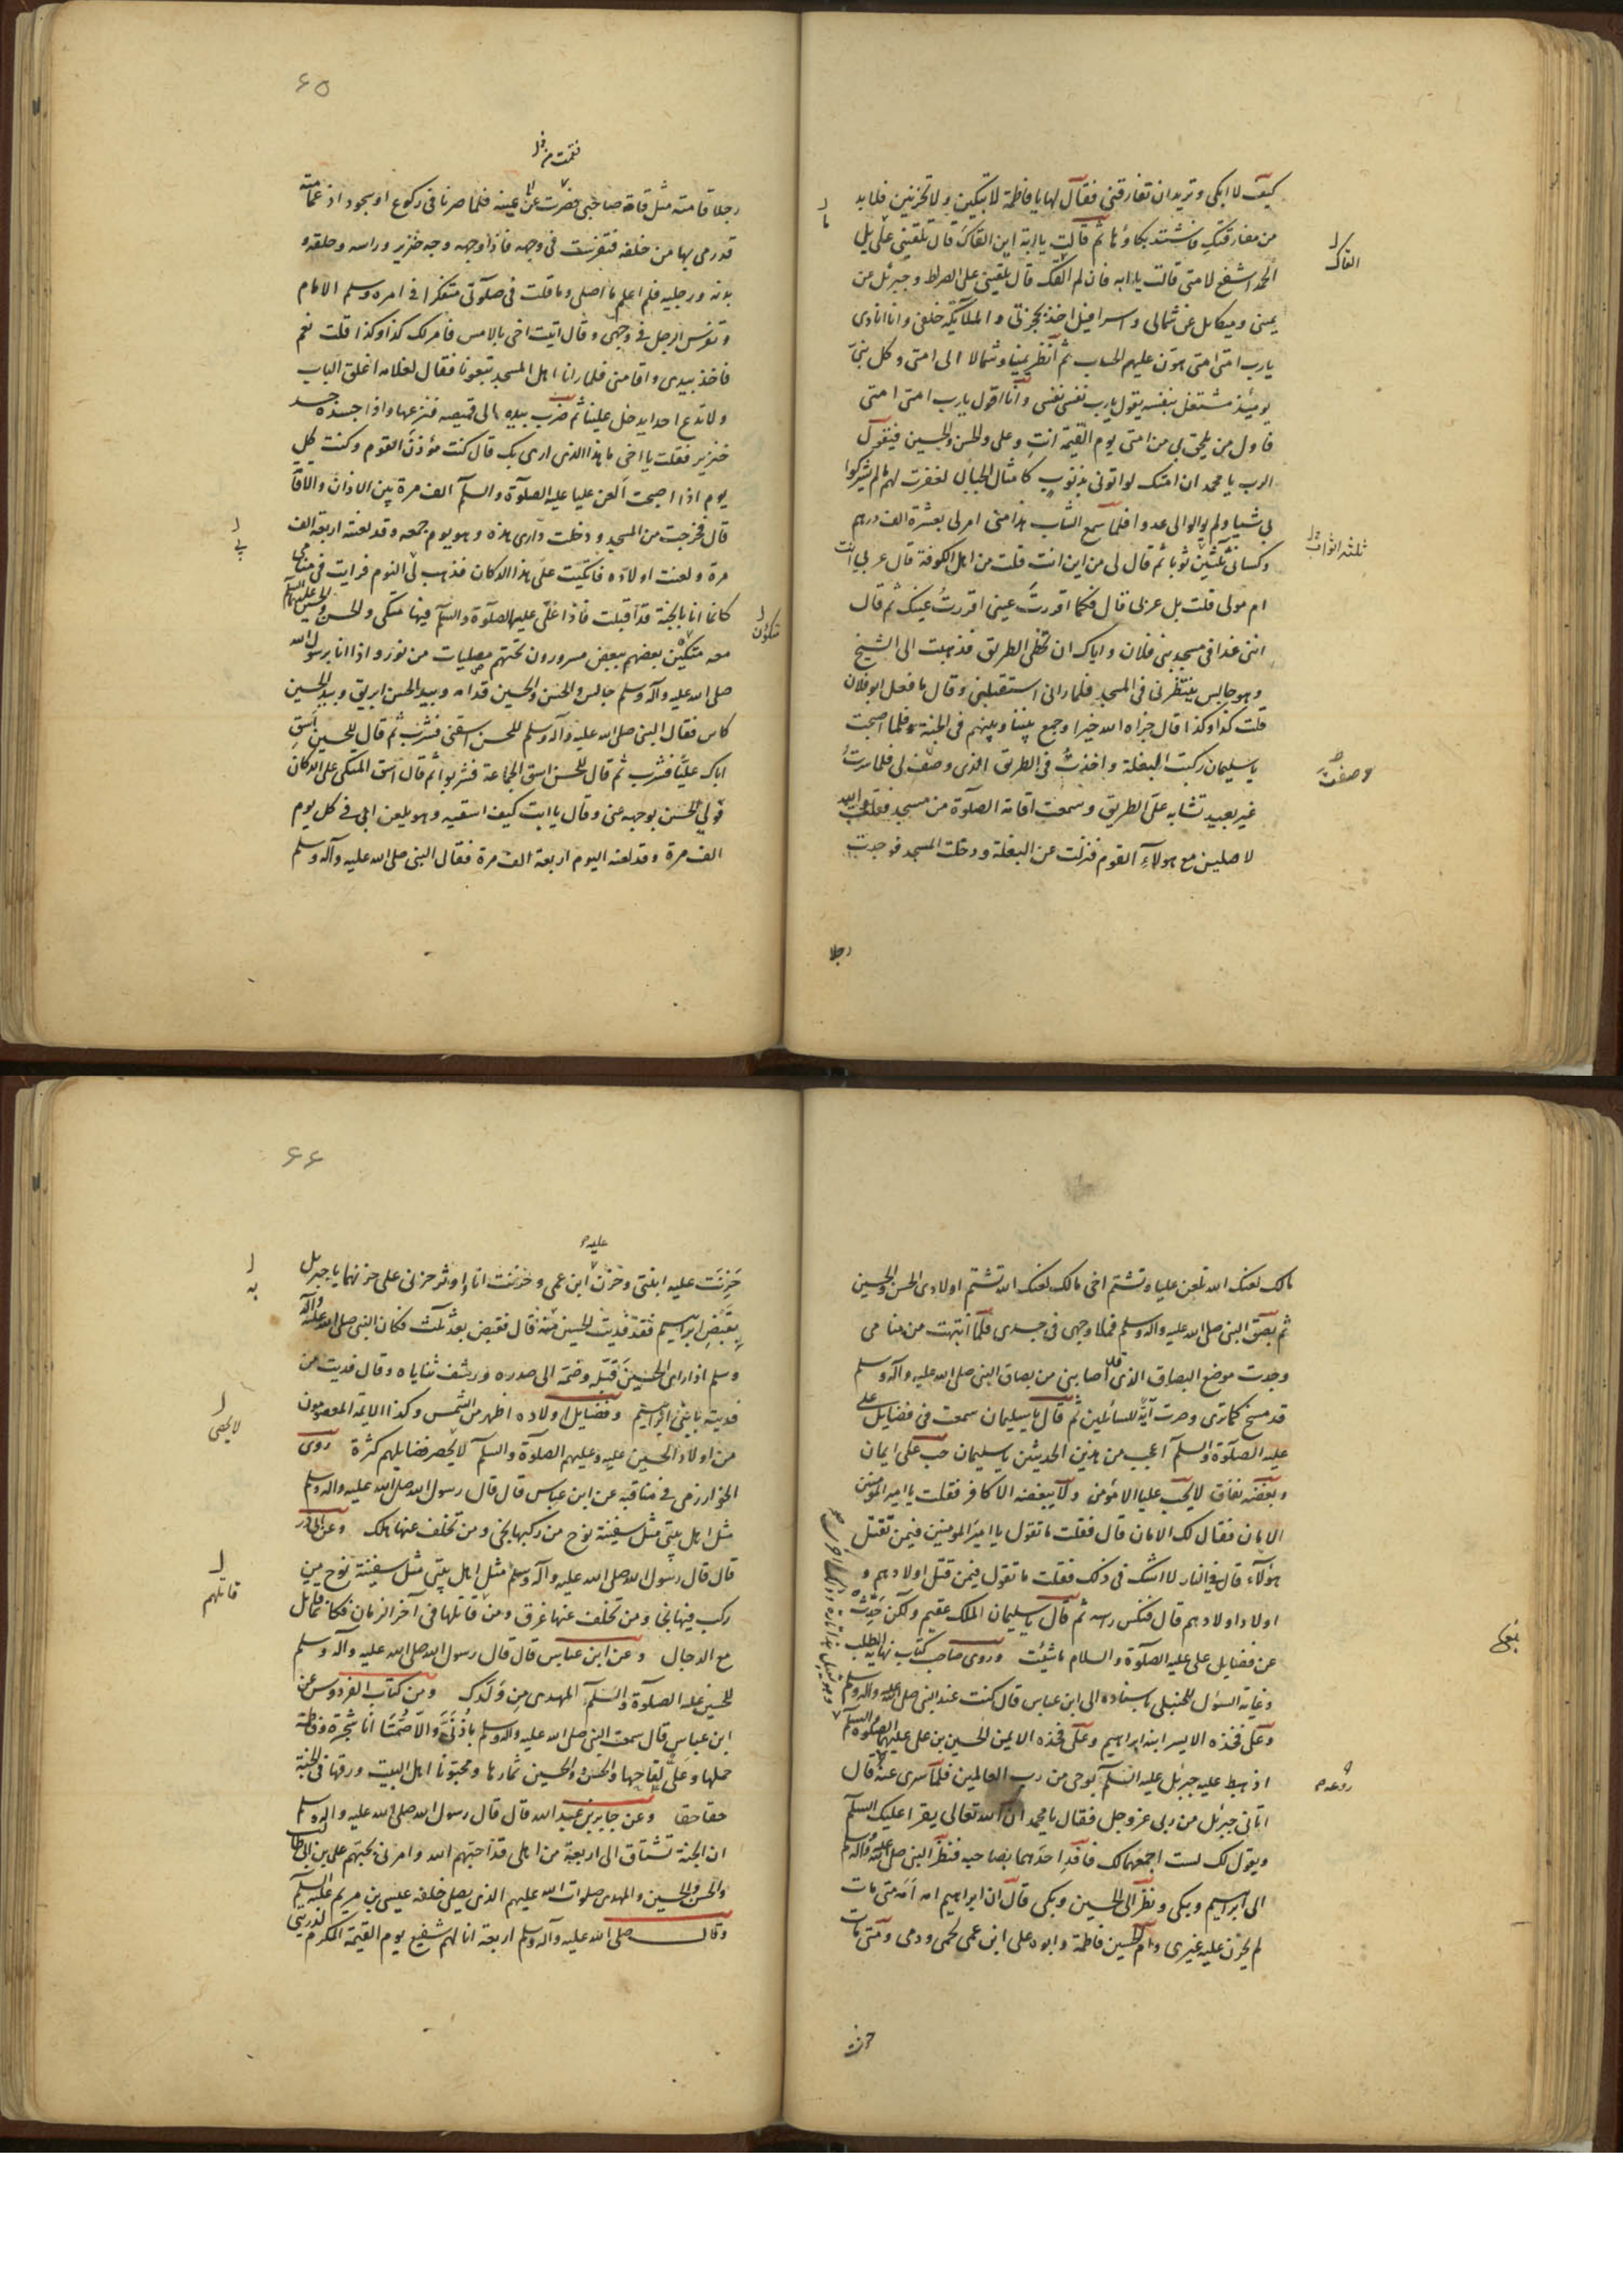 كيف لا ابكي وتريد ان تفارقني فقال لها يا فاطمة لا تبكين ولا تحزنين فلابد
من مفارقتك فاشتد بكاؤها ثم قالت يا ابة اين القاك قال تلقيني على تل
الحمد اشفع لامتي قالت يا ابه فان لم القك قال تلقيني على الصراط وجبرئل عن
يميني وميكايل عن شمالي واسرافيل اخذ بحجزتي والملآئكة خلفي وانا انادي
يا رب امتي امتي هوّن عليهم الحساب ثم انظر يمينا وشمالا الى امتي وكل نبيّ
يومئذ مشتغل بنفسه يقول يا رب نفسي نفسي وانا اقول يا رب امتي امتي
فاول من يلحق بي من امتي يوم القيمة انت وعلي والحسن والحسين فيقول
الرب يا محمد ان امتك لو اتوني بذنوب كامثال الجبال لغفرت لهم ما لم يشركوا
بي شيا ولم يوالوا لي عدوا فلما سمع الشاب هذا مني امر لي بعشرة الف درهم
وكساني ثلثين ثوبا ثم قال لي من اين انت قلت من اهل الكوفة قال عربي انت
ام مولى قلت بل عربي قال فكما اقررت عيني اقررت عينك ثم قال
ائتني غدا في مسجد بني فلان واياك ان تخطى الطريق فذهبت الى الشيخ
وهو جالس ينتظرني في المسجد فلما راني استقبلني وقال ما فعل ابو فلان
قلت كذا وكذا قال جزاه الله خيرا وجمع بيننا وبينهم في الجنة فلما اصبحت
يا سليمان ركبت البغلة واخذت في الطريق الذي وصف لي فلما سرت
غير بعيد تشابه علي الطريق وسمعت اقامة الصلوة من مسجد فقلت والله
لاصلين مع هولآء القوم فنزلت عن البغلة ودخلت المسجد فوجدت
رجلا
القاك
ثلثة اثواب
وصفت
٦٥
رجلا قامته مثل قامة صاحبي فصرت عن يمينه فلما صرنا في ركوع او سجود اذ عمامته
قد رمي بها من خلفه فتفرست في وجهه فاذا وجهه وجه خنزير وراسه وحلقه و
يداه ورجليه فلم اعلم ما اصلي وما قلت في صلوتي متفكرا في امره وسلم الامام
وتفرس الرجل في وجهي وقال اتيت اخي بالامس فامر لك كذا وكذا قلت نعم
فاخذ بيدي واقامني فلما رانا اهل المسجد تبعونا فقال لغلامه اغلق الباب
ولا تدع احدا يدخل علينا ثم ضرب بيده الى قميصه فنزعها واذا جسده جسد
خنزير فقلت يا اخي ما هذا الذي ارى بك قال كنت مؤذن القوم وكنت كل
يوم اذا اصبحت العن عليا عليه الصلوة والسلم الف مرة بين الاذان والاقامة
قال فخرجت من المسجد ودخلت داري هذه وهو يوم جمعه وقد لعنته اربعة الف
مرة ولعنت اولاده فاتكيت على هذا الدكان فذهب بي النوم فرايت في منامي
كانما انا بالجنة قد اقبلت فاذا علي عليه الصلوة والسلم فيها متكى والحسن والحسين عليهما السلم
معه متكئين بعضهم ببعض مسرورون تحتهم مصليات من نور واذا انا برسول الله
صلى الله عليه وآله وسلم جالس والحسن والحسين قدامه وبيد الحسن ابريق وبيد الحسين
كاس فقال النبي صلى الله عليه وآله وسلم للحسن اسقني فشرب ثم قال للحسين اسق
اباك عليّا فشرب ثم قال للحسن اسق الجماعة فشربوا ثم قال اسق المتكى على الدكان
فولى الحسن بوجهه عني وقال يا ابت كيف اسقيه وهو يلعن ابي في كل يوم
الف مرة وقد لعنه اليوم اربعة الف مرة فقال النبي صلى الله عليه وآله وسلم
متكون
مالك لعنك الله تلعن عليا وتشتم اخي مالك لعنك الله تشتم اولادي الحسن والحسين
ثم بصق النبي صلى الله عليه وآله وسلم فملا وجهي في جسدي فلما انتبهت من منامي
وجدت موضع البصاق الذي اصابني من بصاق النبي صلى الله عليه وآله وسلم
قد مسخ كما ترى وصرت آية للسائلين ثم قال يا سليمان سمعت في فضايل علي
عليه الصلوة والسلم اعجب من هذين الحديثين يا سليمان حب علي ايمان
وبغضه نفاق لا يحب عليا الا مؤمن ولا يبغضه الا كافر فقلت يا امير المؤمنين
الامان فقال لك الامان قال فقلت ما تقول يا امير المومنين فيمن قتل
هؤلآء قال في النار لا اشك في ذلك فقلت ما تقول فيمن قتل اولادهم و
اولاد اولادهم قال فنكس رسه ثم قال يا سليمان الملك عقيم ولكن حدّث
عن فضايل علي عليه الصلوة والسلام ما شئت وروى صاحب كتاب نهاية الطلب
وغاية السؤل للحنبلي باسناده الى ابن عباس قال كنت عند النبي صلى الله عليه وآله وسلم
وعلى فخذه الايسر ابنه ابراهيم وعلى فخذه الايمن الحسين بن علي عليهما الصلوة والسلم
اذ هبط عليه جبرئل عليه السلم بوحي من رب العالمين فلما سرى عنه قال
اتاني جبرئل من ربي عز وجل فقال يا محمد ان الله تعالى يقرا عليك السلم
ويقول لك لست اجمعهما لك فافد احدهما بصاحبه فنظر النبي صلى الله عليه وآله وسلم
الى ابراهيم وبكى ونظر الى الحسين وبكى قال ان ابراهيم امه امة متى مات
لم يحزن عليه غيري وام الحسين فاطمة وابوه علي ابن عمي لحمي ودمي ومتى مات
حزنت
٦٦
عليه
حزنت عليه ابنتي وحزن ابن عمي وحزنت انا واوثر حزني على حزنهما يا جبريل
يقبض ابراهيم فقد فديت الحسين منه قال فقبض بعد ثلث فكان النبي صلى الله عليه وآله
وسلم اذا راى الحسين قبّله وضمه الى صدره ورشف ثناياه وقال فديت من
فديته بابني ابراهيم وفضايل اولاده اظهر من الشمس وكذا الايمة المعصومون
من اولاد الحسين عليه وعليهم الصلوة والسلم لا يحصر فضايلهم كثرة روى
الخوارزمي في مناقبه عن ابن عباس قال قال رسول الله صلى الله عليه وآله وسلم
مثل اهل بيتي مثل سفينة نوح من ركبها نجى ومن تخلف عنها هلك وعن ابي ذر
قال قال رسول الله صلى الله عليه وآله وسلم مثل اهل بيتي مثل سفينة نوح من
ركب فيها نجا ومن تخلف عنها غرق ومن قاتلها في آخر الزمان فكانما قاتل
مع الدجال وعن ابن عباس قال قال رسول الله صلى الله عليه وآله وسلم
للحسين عليه الصلوة والسلم المهدي من ولدك ومن كتاب الفردوس عن
ابن عباس قال سمعت النبي صلى الله عليه وآله وسلم باذني والا صمتا انا شجرة وفاطمة
حملها وعلي لقاحها والحسن والحسين ثمارها ومحبونا اهل البيت ورقها في الجنة
حقا حق وعن جابر بن عبد الله قال قال رسول الله صلى الله عليه وآله وسلم
ان الجنة تشتاق الى اربعة من اهلي قد احبهم الله وامرني بحبهم علي بن ابي طالب
والحسن والحسين والمهدي صلوات الله عليهم الذي يصلي خلفه عيسى بن مريم عليه السلم
وقال صلى الله عليه وآله وسلم اربعة انا لهم شفيع يوم القيمة المكرم لذريتي
لا يحصى
قاتلهم